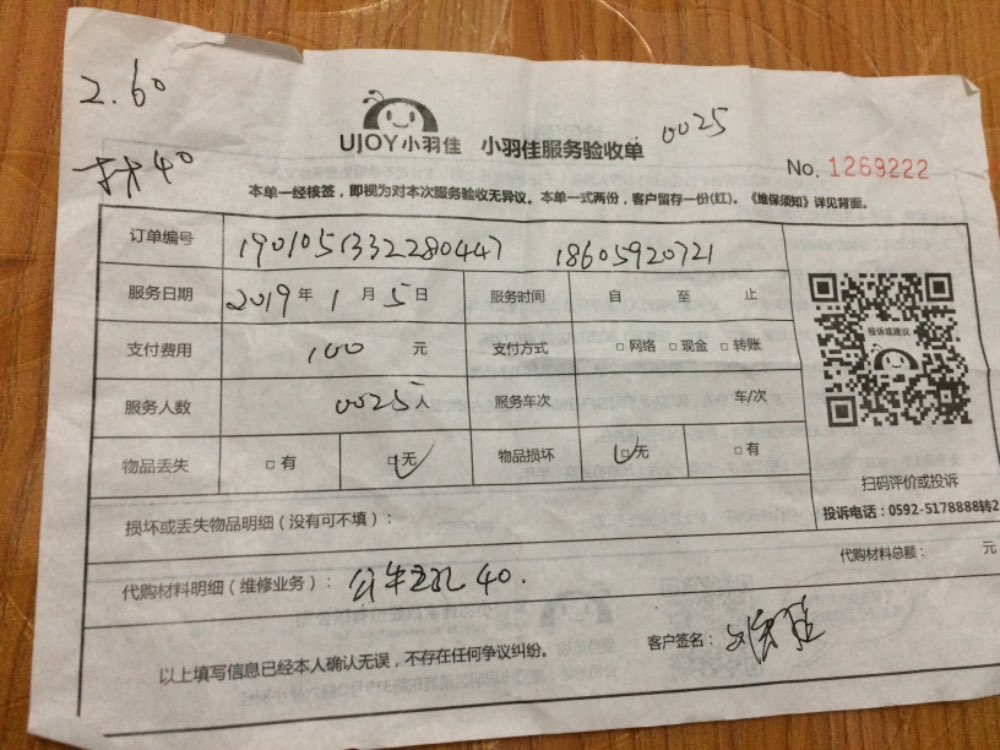 2.60
材40
UJOY小羽佳 小羽佳服务验收单 0025
No. 1269222
本单一经核签，即视为对本次服务验收无异议。本单一式两份，客户留存一份(红)。《维保须知》详见背面。
订单编号 1901051332280447 18605920721
服务日期 2019年1月5日 服务时间 自 至 止
支付费用 100 元 支付方式 □网络 □现金 □转账
投诉或建议
服务人数 0025人 服务车次 车/次
物品丢失 □有 □无 物品损坏 □无 □有
扫码评价或投诉
投诉电话：0592-5178888转2
损坏或丢失物品明细（没有可不填）：
代购材料总额： 元
代购材料明细（维修业务）： 公牛 40.
客户签名：
以上填写信息已经本人确认无误，不存在任何争议纠纷。